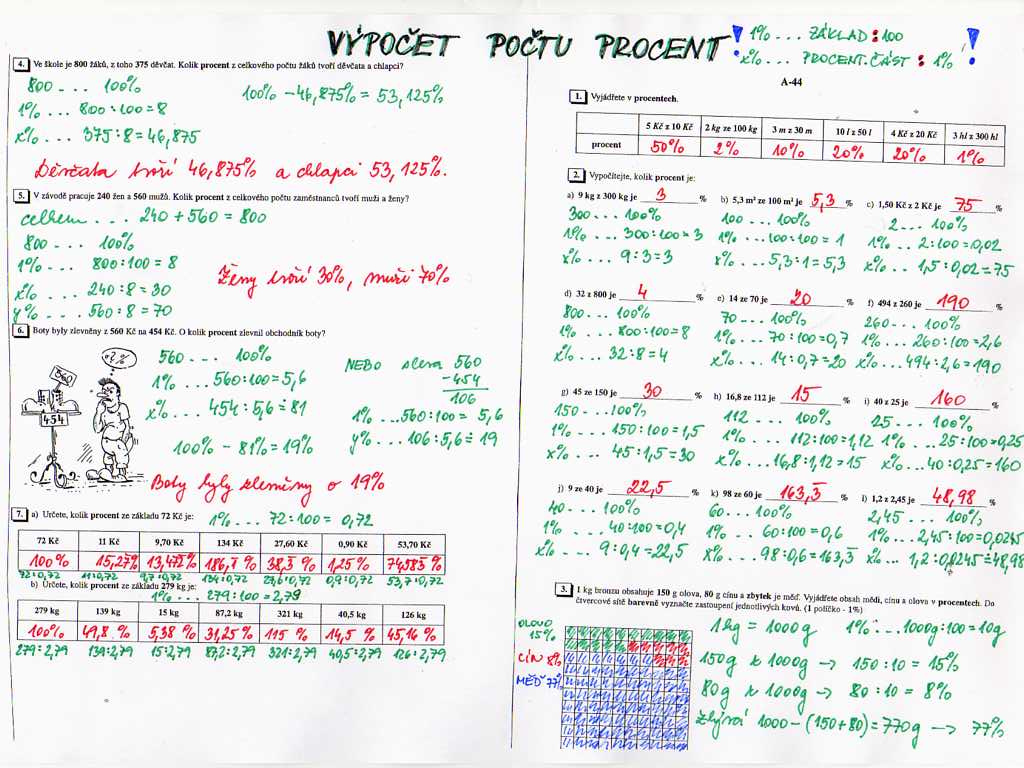 VÝPOČET POČTU PROCENT
! 1% ... ZÁKLAD : 100 !
x% ... PROCENT. ČÁST : 1%
4. Ve škole je 800 žáků, z toho 375 děvčat. Kolik procent z celkového počtu žáků tvoří děvčata a chlapci?
800 ... 100%
1% ... 800:100 = 8
x% ... 375:8 = 46,875
100% - 46,875% = 53,125%
Děvčata tvoří 46,875% a chlapci 53,125%.
5. V závodě pracuje 240 žen a 560 mužů. Kolik procent z celkového počtu zaměstnanců tvoří muži a ženy?
celkem ... 240 + 560 = 800
800 ... 100%
1% ... 800:100 = 8
x% ... 240:8 = 30
y% ... 560:8 = 70
Ženy tvoří 30%, muži 70%
6. Boty byly zlevněny z 560 Kč na 454 Kč. O kolik procent zlevnil obchodník boty?
?%
560
454
560 ... 100%
1% ... 560:100 = 5,6
x% ... 454:5,6 ≐ 81
100% - 81% = 19%
NEBO sleva 560
-454
106
1% ... 560:100 = 5,6
y% ... 106:5,6 ≐ 19
Boty byly zlevněny o 19%
7. a) Určete, kolik procent ze základu 72 Kč je:
1% ... 72:100 = 0,72
72 Kč 11 Kč 9,70 Kč 134 Kč 27,60 Kč 0,90 Kč 53,70 Kč
100% 15,27% 13,472% 186,1% 38,3% 1,25% 74,583%
72:0,72 11:0,72 9,7:0,72 134:0,72 27,6:0,72 0,9:0,72 53,7:0,72
b) Určete, kolik procent ze základu 279 kg je:
1% ... 279:100 = 2,79
279 kg 139 kg 15 kg 87,2 kg 321 kg 40,5 kg 126 kg
100% 49,8 % 5,38 % 31,25% 115 % 14,5 % 45,16 %
279:2,79 139:2,79 15:2,79 87,2:2,79 321:2,79 40,5:2,79 126:2,79
A-44
1. Vyjádřete v procentech.
5 Kč z 10 Kč 2 kg ze 100 kg 3 m z 30 m 10 l z 50 l 4 Kč z 20 Kč 3 hl z 300 hl
procent 50% 2% 10% 20% 20% 1%
2. Vypočítejte, kolik procent je:
a) 9 kg z 300 kg je 3 %
300 ... 100%
1% ... 300:100 = 3
x% ... 9:3 = 3
b) 5,3 m² ze 100 m² je 5,3 %
100 ... 100%
1% ... 100:100 = 1
x% ... 5,3:1 = 5,3
c) 1,50 Kč z 2 Kč je 75 %
2 ... 100%
1% .. 2:100 = 0,02
x% ... 1,5:0,02 = 75
d) 32 z 800 je 4 %
800 ... 100%
1% ... 800:100 = 8
x% ... 32:8 = 4
e) 14 ze 70 je 20 %
70 ... 100%
1% ... 70:100 = 0,7
x% ... 14:0,7 = 20
f) 494 z 260 je 190 %
260 ... 100%
1% ... 260:100 = 2,6
x% ... 494:2,6 = 190
g) 45 ze 150 je 30 %
150 ... 100%
1% ... 150:100 = 1,5
x% ... 45:1,5 = 30
h) 16,8 ze 112 je 15 %
112 ... 100%
1% ... 112:100 = 1,12
x% ... 16,8:1,12 = 15
i) 40 z 25 je 160 %
25 ... 100%
1% ... 25:100 = 0,25
x% ... 40:0,25 = 160
j) 9 ze 40 je 22,5 %
40 ... 100%
1% ... 40:100 = 0,4
x% ... 9:0,4 = 22,5
k) 98 ze 60 je 163,3 %
60 ... 100%
1% .. 60:100 = 0,6
x% ... 98:0,6 = 163,3
l) 1,2 z 2,45 je 48,98 %
2,45 ... 100%
1% ... 2,45:100 = 0,0245
x% ... 1,2:0,0245 = 48,98
3. 1 kg bronzu obsahuje 150 g olova, 80 g cínu a zbytek je měď. Vyjádřete obsah mědi, cínu a olova v procentech. Do
čtvercové sítě barevně vyznačte zastoupení jednotlivých kovů. (1 políčko - 1%)
OLOVO
15%
CÍN 8%
MĚĎ 77%
1kg = 1000g 1% ... 1000g:100 = 10g
150g z 1000g → 150:10 = 15%
80g z 1000g → 80:10 = 8%
zbývá 1000 - (150+80) = 770g → 77%